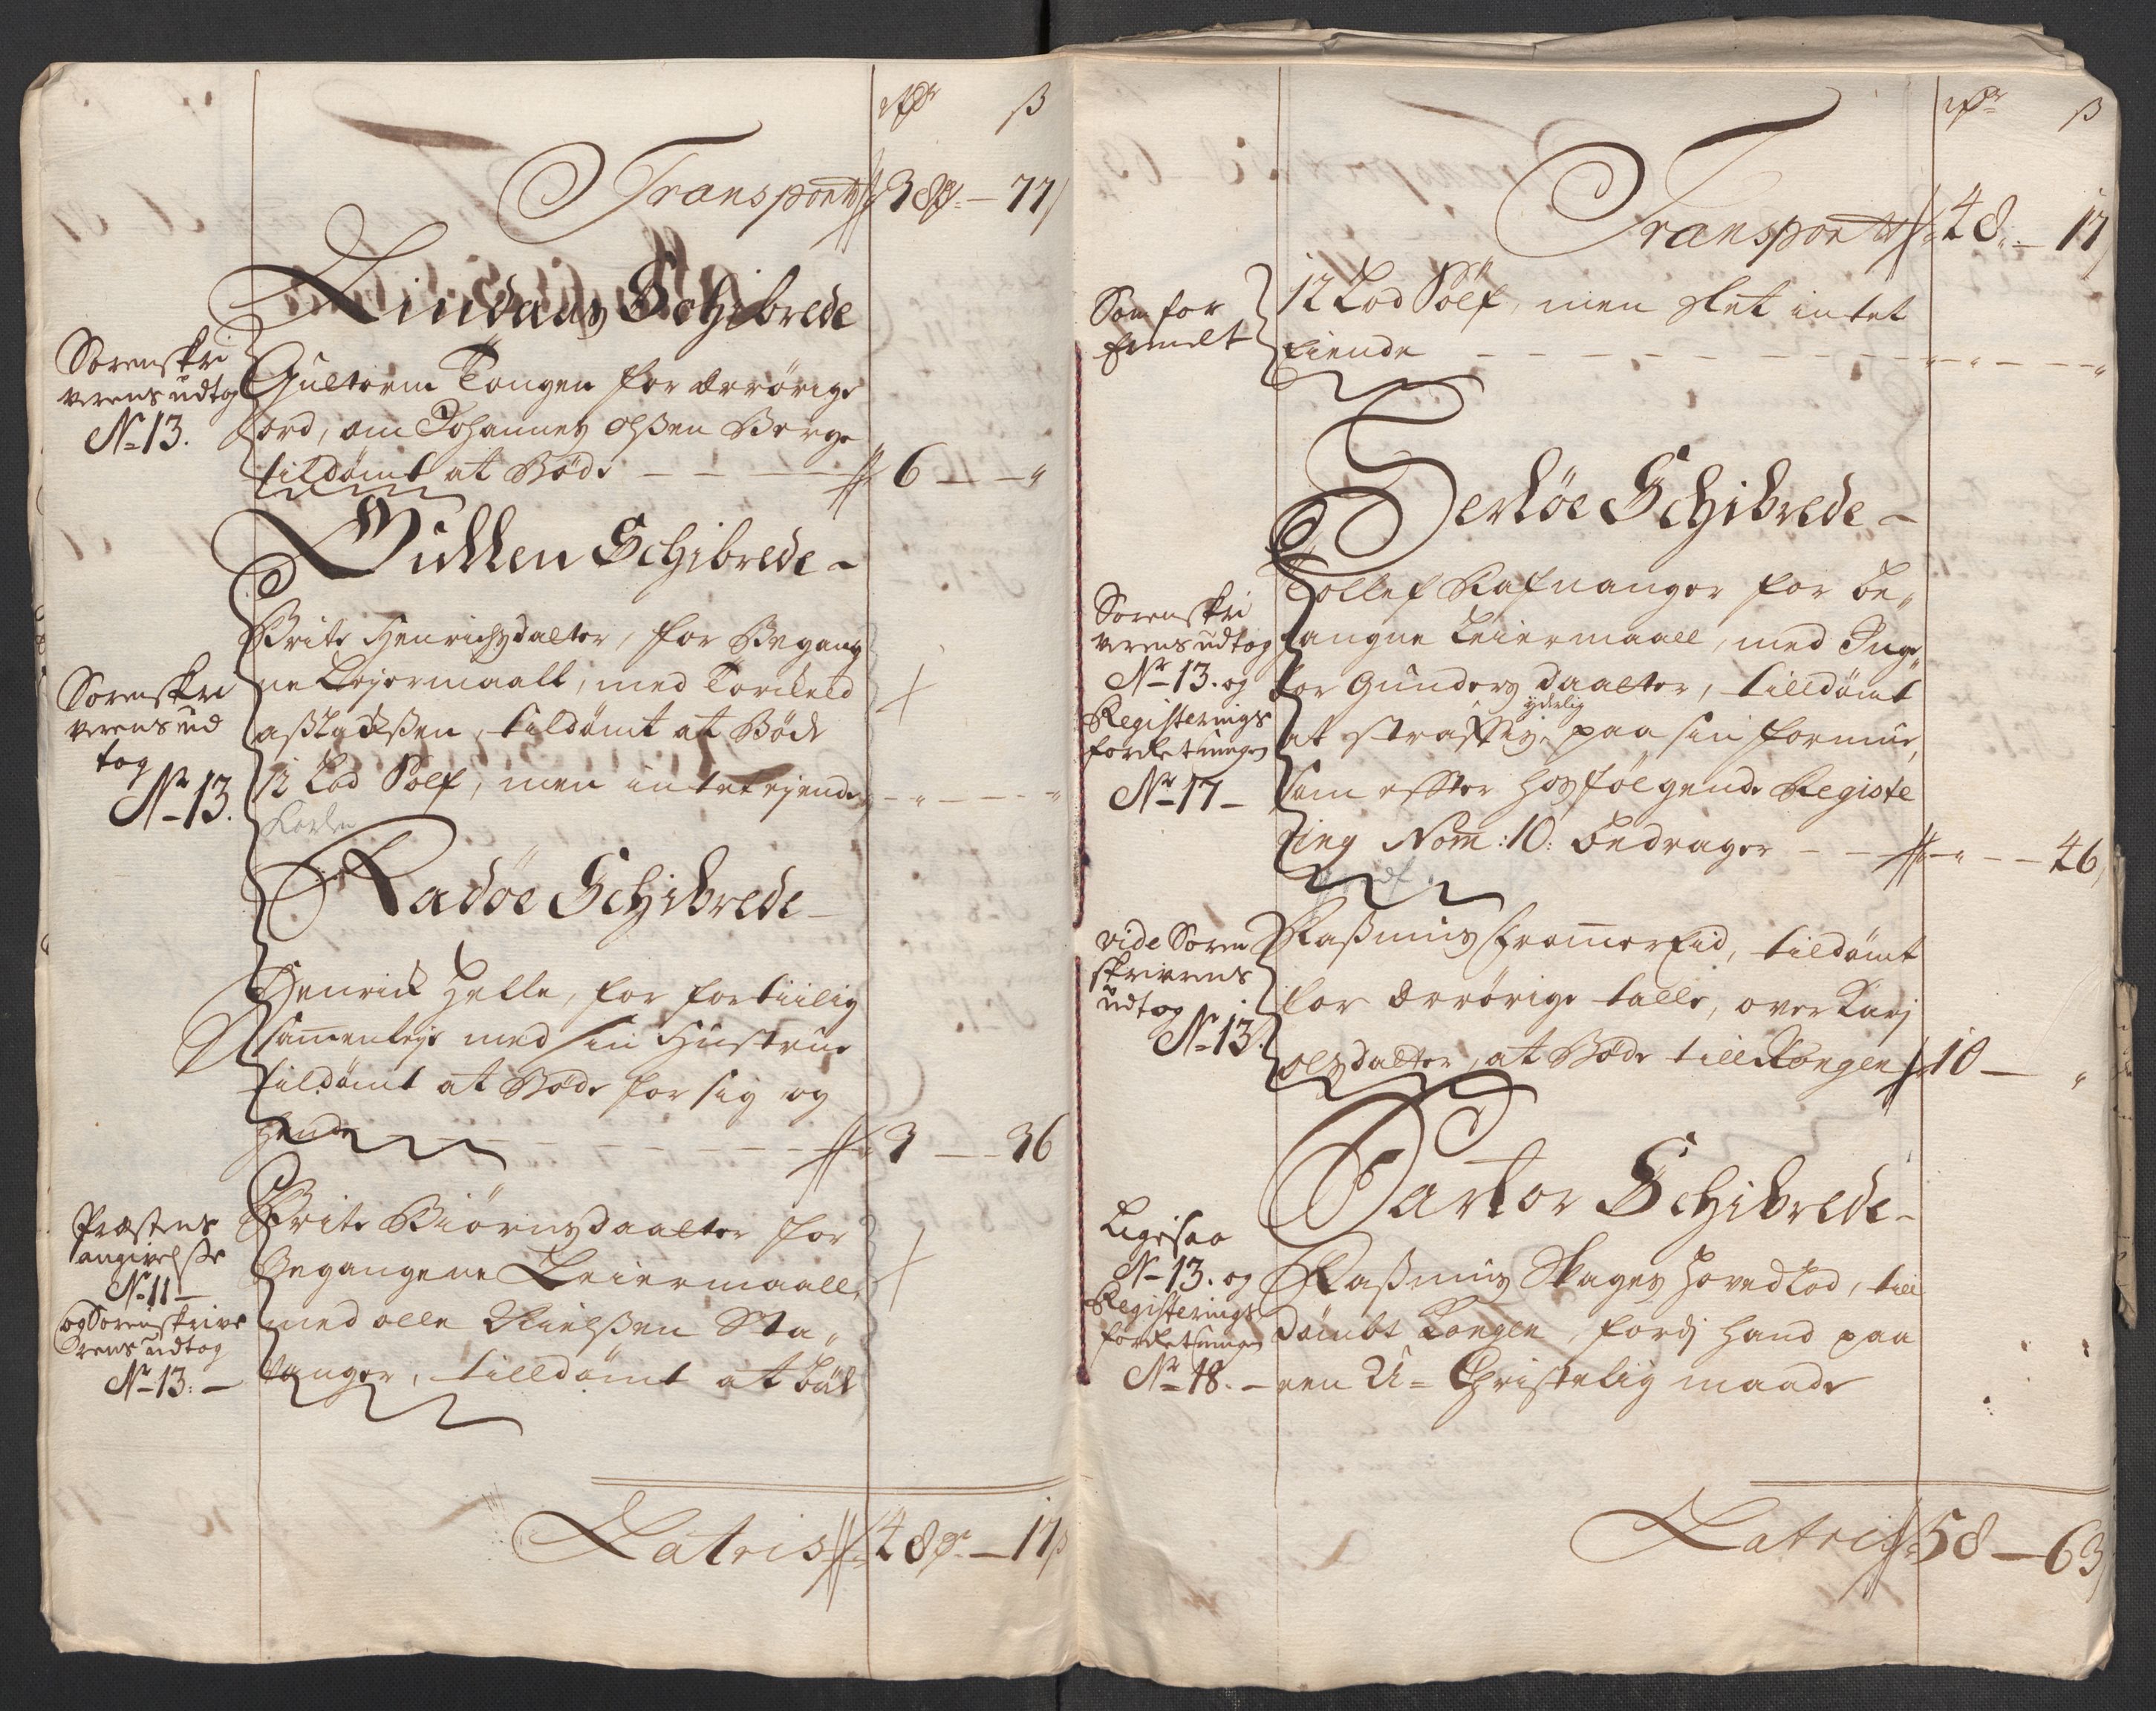 Rdr ß
Transport 38 – 77
Lindaas Schibrede
Sorenskri
verens udtog
No 13.
Guttorm Tongen for ærrørige
ord, om Johannes Olßen Berge
tildømt at Bøde – – – 6 – –
Gulen Schibrede –
Sorenskri
verens ud
tog
No 13.
Brite Henrichsdatter, for Begang
ne Lejermaall, med Torkeld
tildømt at Bøde
12 Lod Sølf, men intet ejende – – –
Radöe Schibrede –
Henrich Helle, for fortiilig
sammenleje med sin Hustrue
tildømt at Bøde for sig og
hende – – – 3 – 36
Præstens
angivelße
No 11 –
og Sorenskrive
rens udtog
No 13. –
Brite Biörnsdaatter for
Begangene Leiermaall,
med Olle Nielßen Sta„
vanger, tilldømt at bøde
Latris 48 – 17 ß
Rdr ß
Transport 48 – 17
Som for
12 Lod Sølf, men slet intet
Eiende – – –
Herlöe Schibrede –
Sorenskri
verens udtog
No 13. og
Registerings
forretningen
No 17 –
Tollef Rafnanger for be„
gangne Leiermaall, med Inge„
bor Gunders daatter, tilldømt
yderlig
at straffis paa sin formue,
som effter hosfölgende Registe
ring Nom: 10: bedrager – – – 46
vide Soren
skriverens
udtog
No 13.
Raßmus Frommereid, tildømt
for ærrørige talle, over Kari
Olsdatter, at Bøde till Kongen 10 –
Schibrede –
Ligesaa
No 13. og
Registerings
forretningen
No 18. –
Raßmus Skages hovedlod, till
dømbt Kongen, fordj hand paa
een U= Christelig maade
Latris 58 – 63